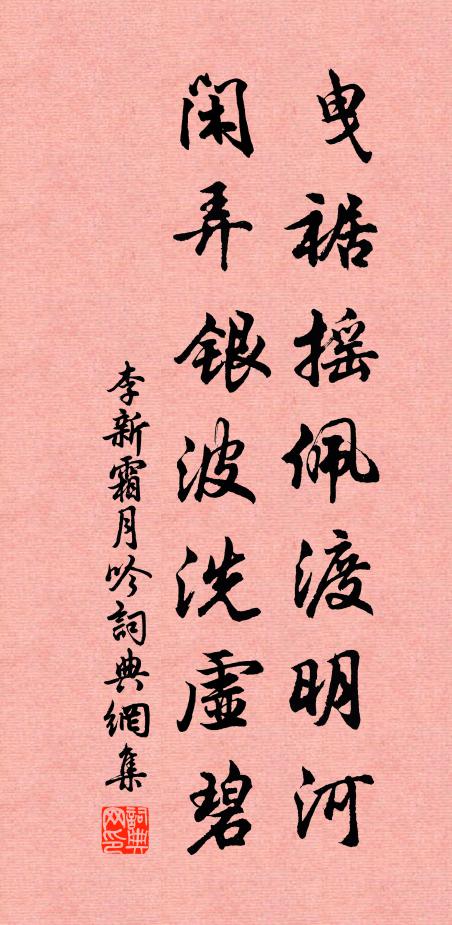 曳裾摇佩渡明河
闲弄银波洗虚碧
李新霜月吟詞典網集
詞典网印